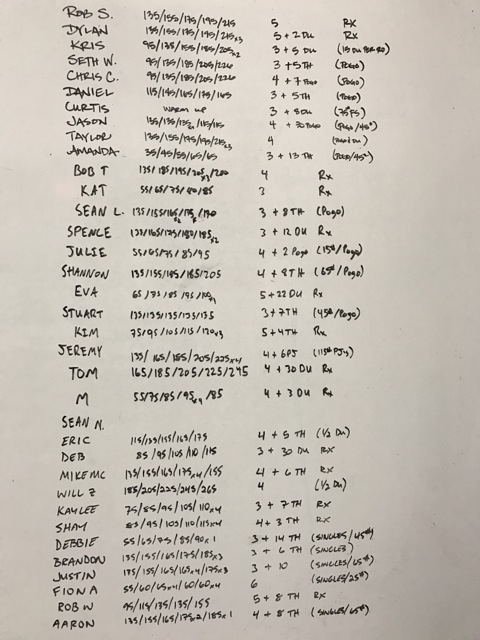 ROB S. 135/155/175/195/215 5 RX
DYLAN 135/155/175/195/215x3 5 + 2 DU RX
KRIS 95/135/155/185/205x2 3 + 5 DU (15 DU PER RD)
SETH W. 95/135/185/205/226 3 + 5TH (POGO)
CHRIS C. 95/135/185/205/226 4 + 7 POGO (POGO)
DANIEL 115/145/165/175/165 3 + 5TH (POGO)
CURTIS WARM UP 3 + 8DU (75FS)
JASON 135/135/135/115/115 4 + 30 POGO (POGO/45#)
TAYLOR 135/155/175/195/215x3 4
AMANDA 35/45/55/65/65 3 + 13 TH (POGO/45#)
BOB T 135/185/195/205x3/200 4 Rx
KAT 55/65/75/80/85 3 Rx
SEAN L. 135/155/165x2/175/170 3 + 8TH (Pogo)
SPENCE 135/165/175/180/185x2 3 + 12 DU Rx
JULIE 55/65/75/85/95 4 + 2 Pogo (15#/Pogo)
SHANNON 135/155/185/185/205 4 + 8TH (65#/Pogo)
EVA 65/75/85/95/100 5 + 22 DU Rx
STUART 135/135/135/135/135 3 + 7TH (45#/Pogo)
KIM 75/95/105/115/120x3 5 + 4TH Rx
JEREMY 135/165/185/205/225x4 4 + 6PJ (115# PJ's)
TOM 165/185/205/225/245 4 + 30 DU Rx
M 55/75/85/95x4/85 4 + 3 DU Rx
SEAN N.
ERIC 115/135/155/165/175 4 + 5 TH (1/2 DU)
DEB 85/95/105/110/115 3 + 30 DU RX
MIKE MC 135/155/165/175x4/155 4 + 6 TH RX
WILL Z 185/205/225/245/265 4 (1/2 DU)
KAYLEE 75/85/95/105/110x4 3 + 7 TH RX
SHAY 85/95/105/110/115x4 4 + 3 TH RX
DEBBIE 55/65/75/85/90x1 3 + 14 TH (SINGLES/45#)
BRANDON 135/155/165/175/185x3 3 + 6 TH (SINGLES)
JUSTIN 135/155/165/165x4/175x3 3 + 10 (SINGLES/65#)
FIONA 55/60/65x4/60/60x4 6 (SINGLES/25#)
ROB W 95/115/135/135/155 5 + 8 TH RX
AARON 135/155/165/175x2/185x1 4 + 8 TH (SINGLES/65#)